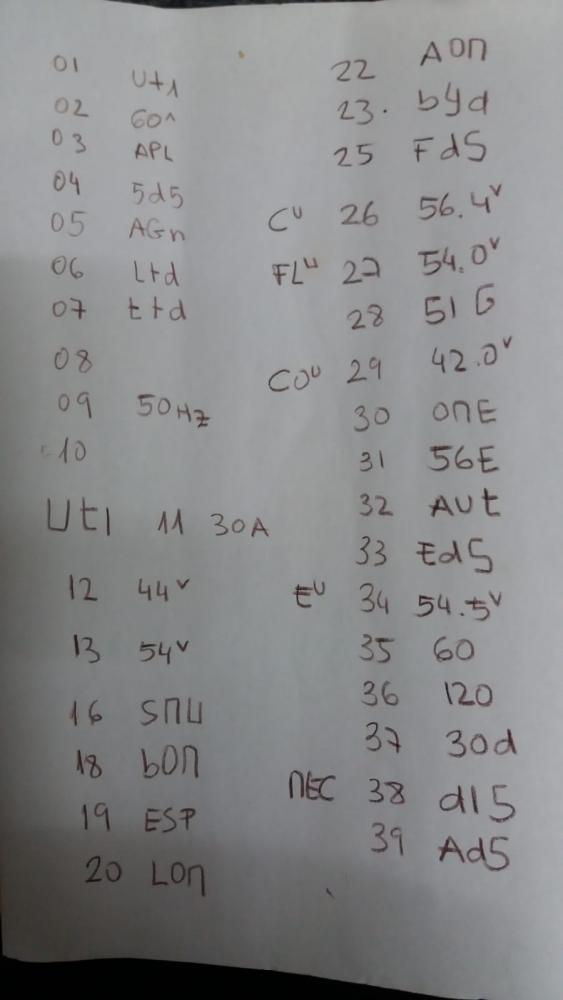 01 Ut1
02 60^
03 APL
04 5d5
05 AGn
06 Ltd
07 ttd
08
09 50Hz
10
Ut1 11 30A
12 44v
13 54v
16 SΠU
18 bOΠ
19 ESP
20 LOΠ
22 AOΠ
23. byd
25 FdS
CU 26 56.4v
FLU 27 54.0v
28 51G
COU 29 42.0v
30 OΠE
31 56E
32 AUt
33 EdS
EU 34 54.5v
35 60
36 120
37 30d
ΠEC 38 dI5
39 Ad5